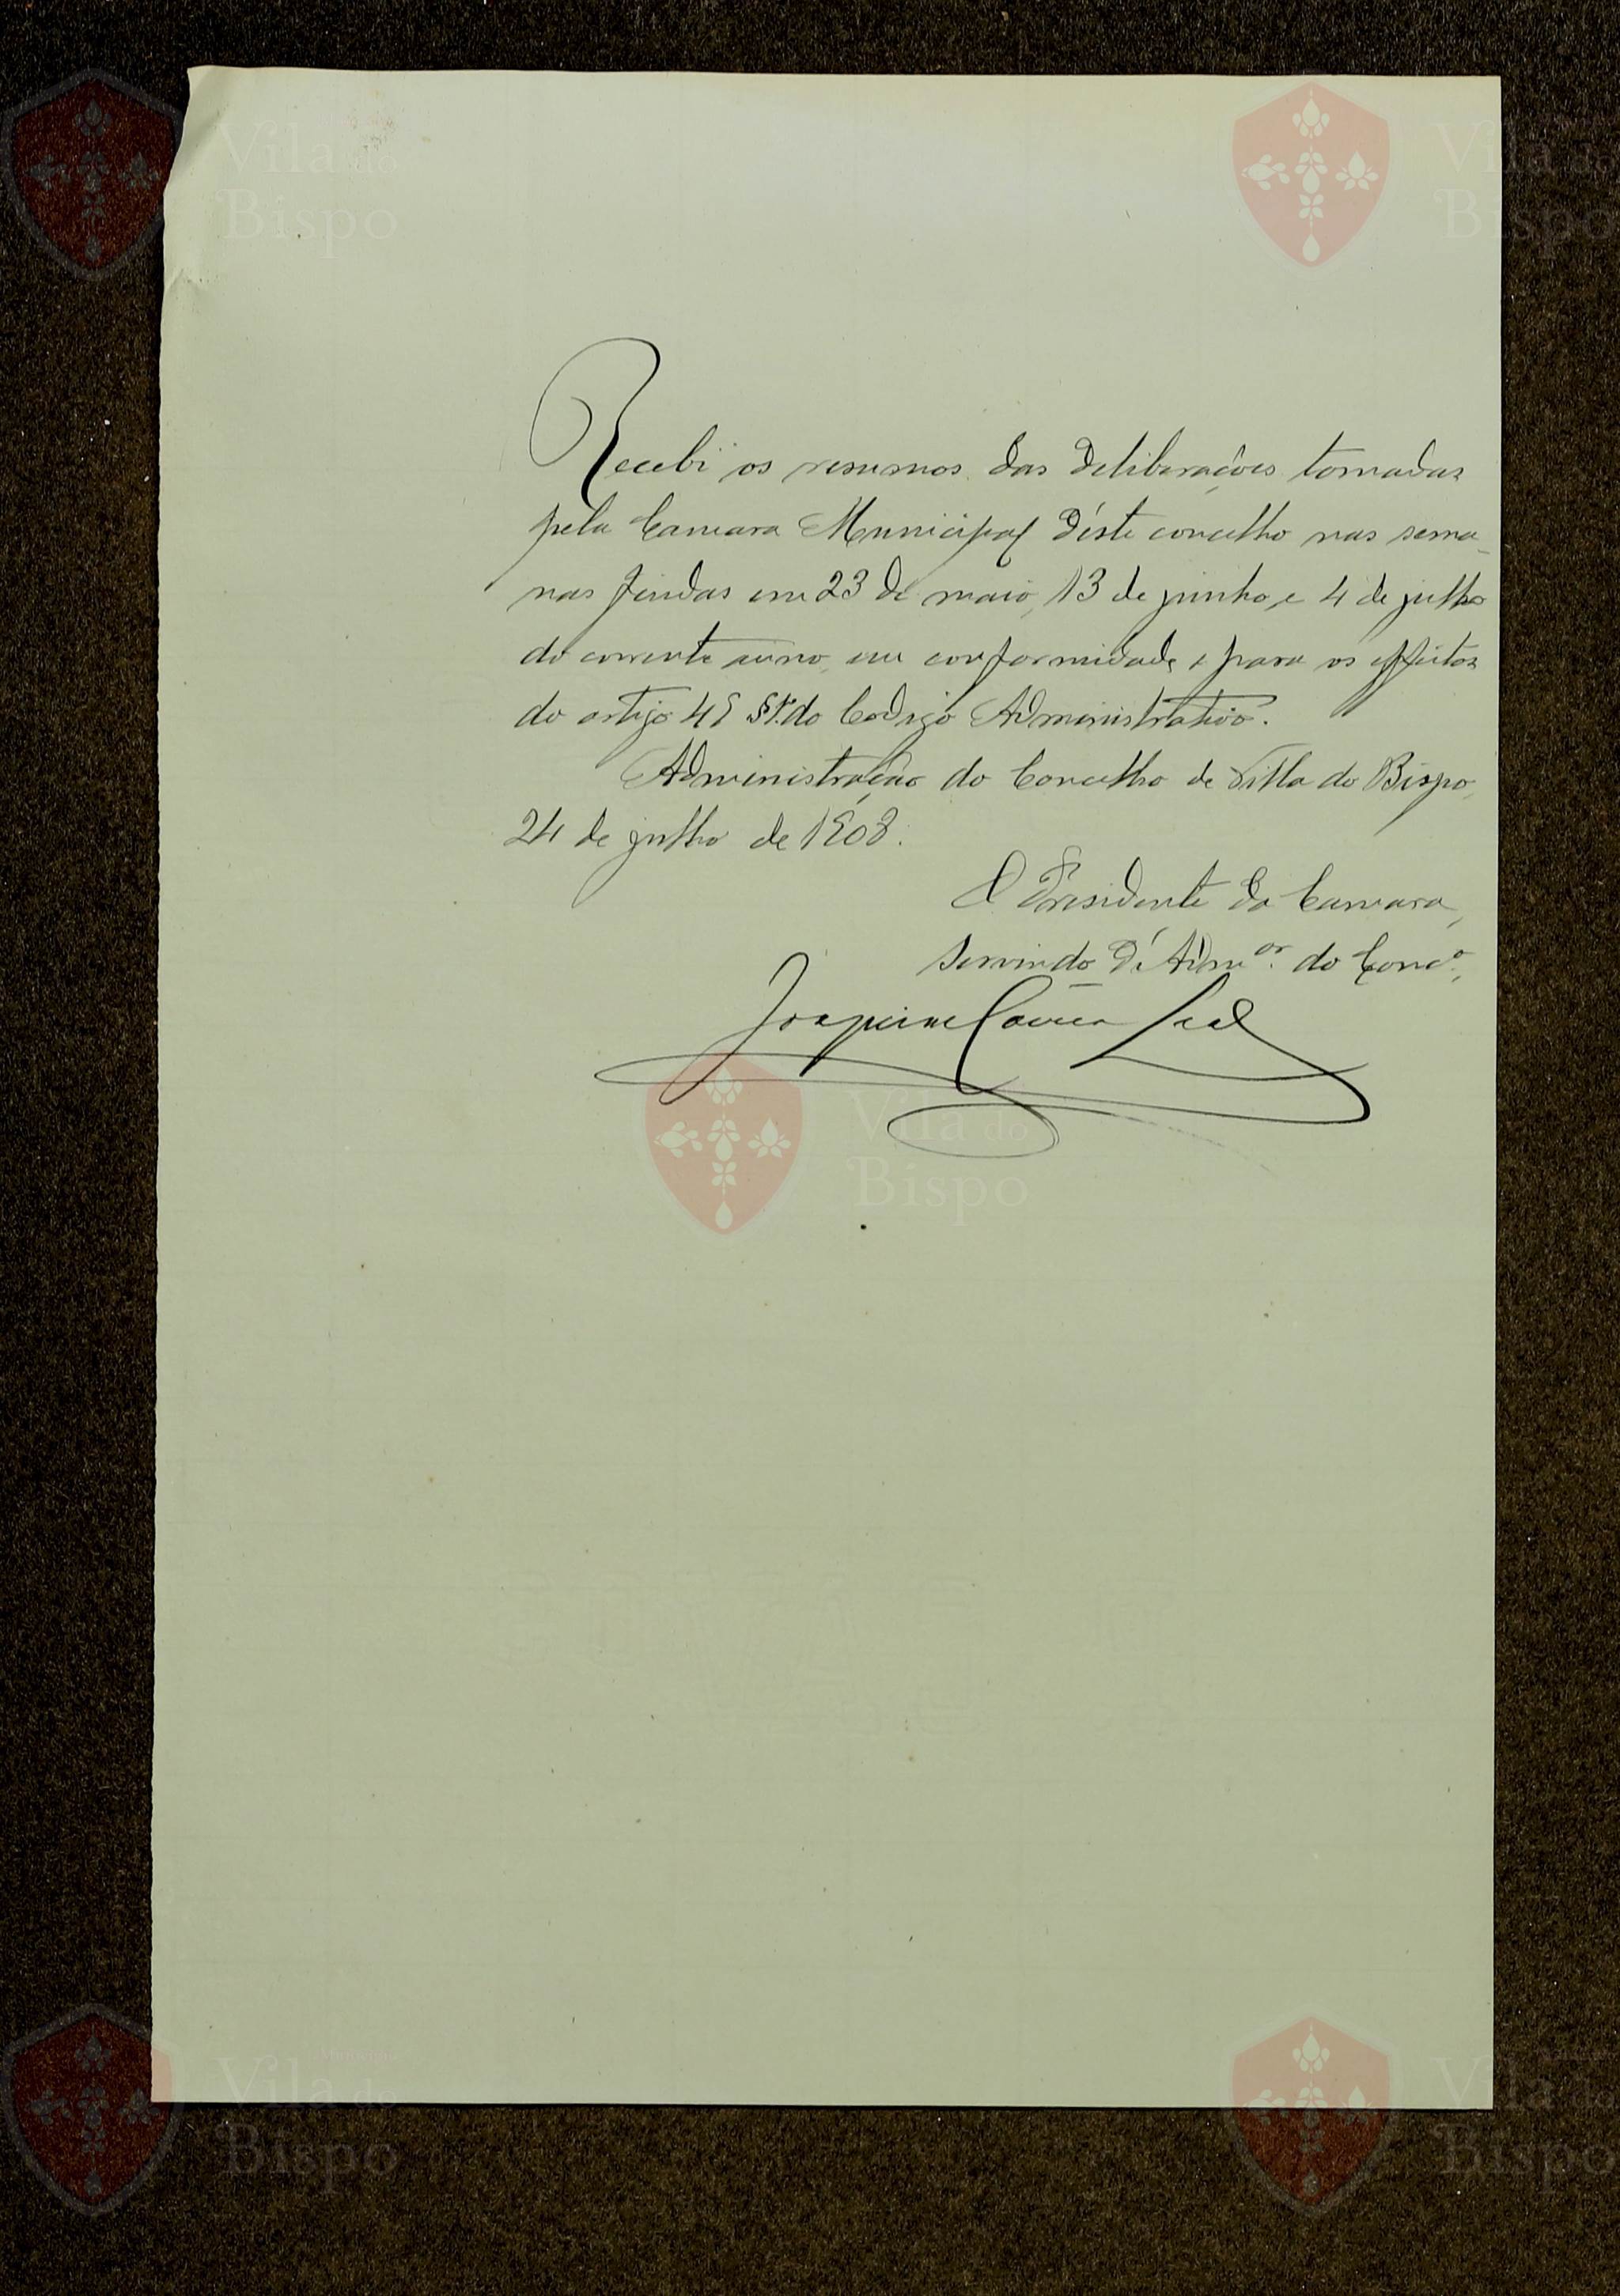 Vila do
Bispo
Vila do
Bispo
Recebi os resumos das deliberações tomadas
pela Camara Municipal d'éste concelho nas sema-
nas findas em 23 de maio, 13 de junho, e 4 de julho
do corrente anno, em conformidade e para os effeitos
do artigo 49 § 1º do Codigo Administrativo.
Administração do Concelho de Villa do Bispo,
24 de julho de 1908.
O Presidente da Camara,
servindo d'Admor. do Conco.,
Joaquim Leal
Vila do
Bispo
Vila do
Bispo
Vila do
Bispo